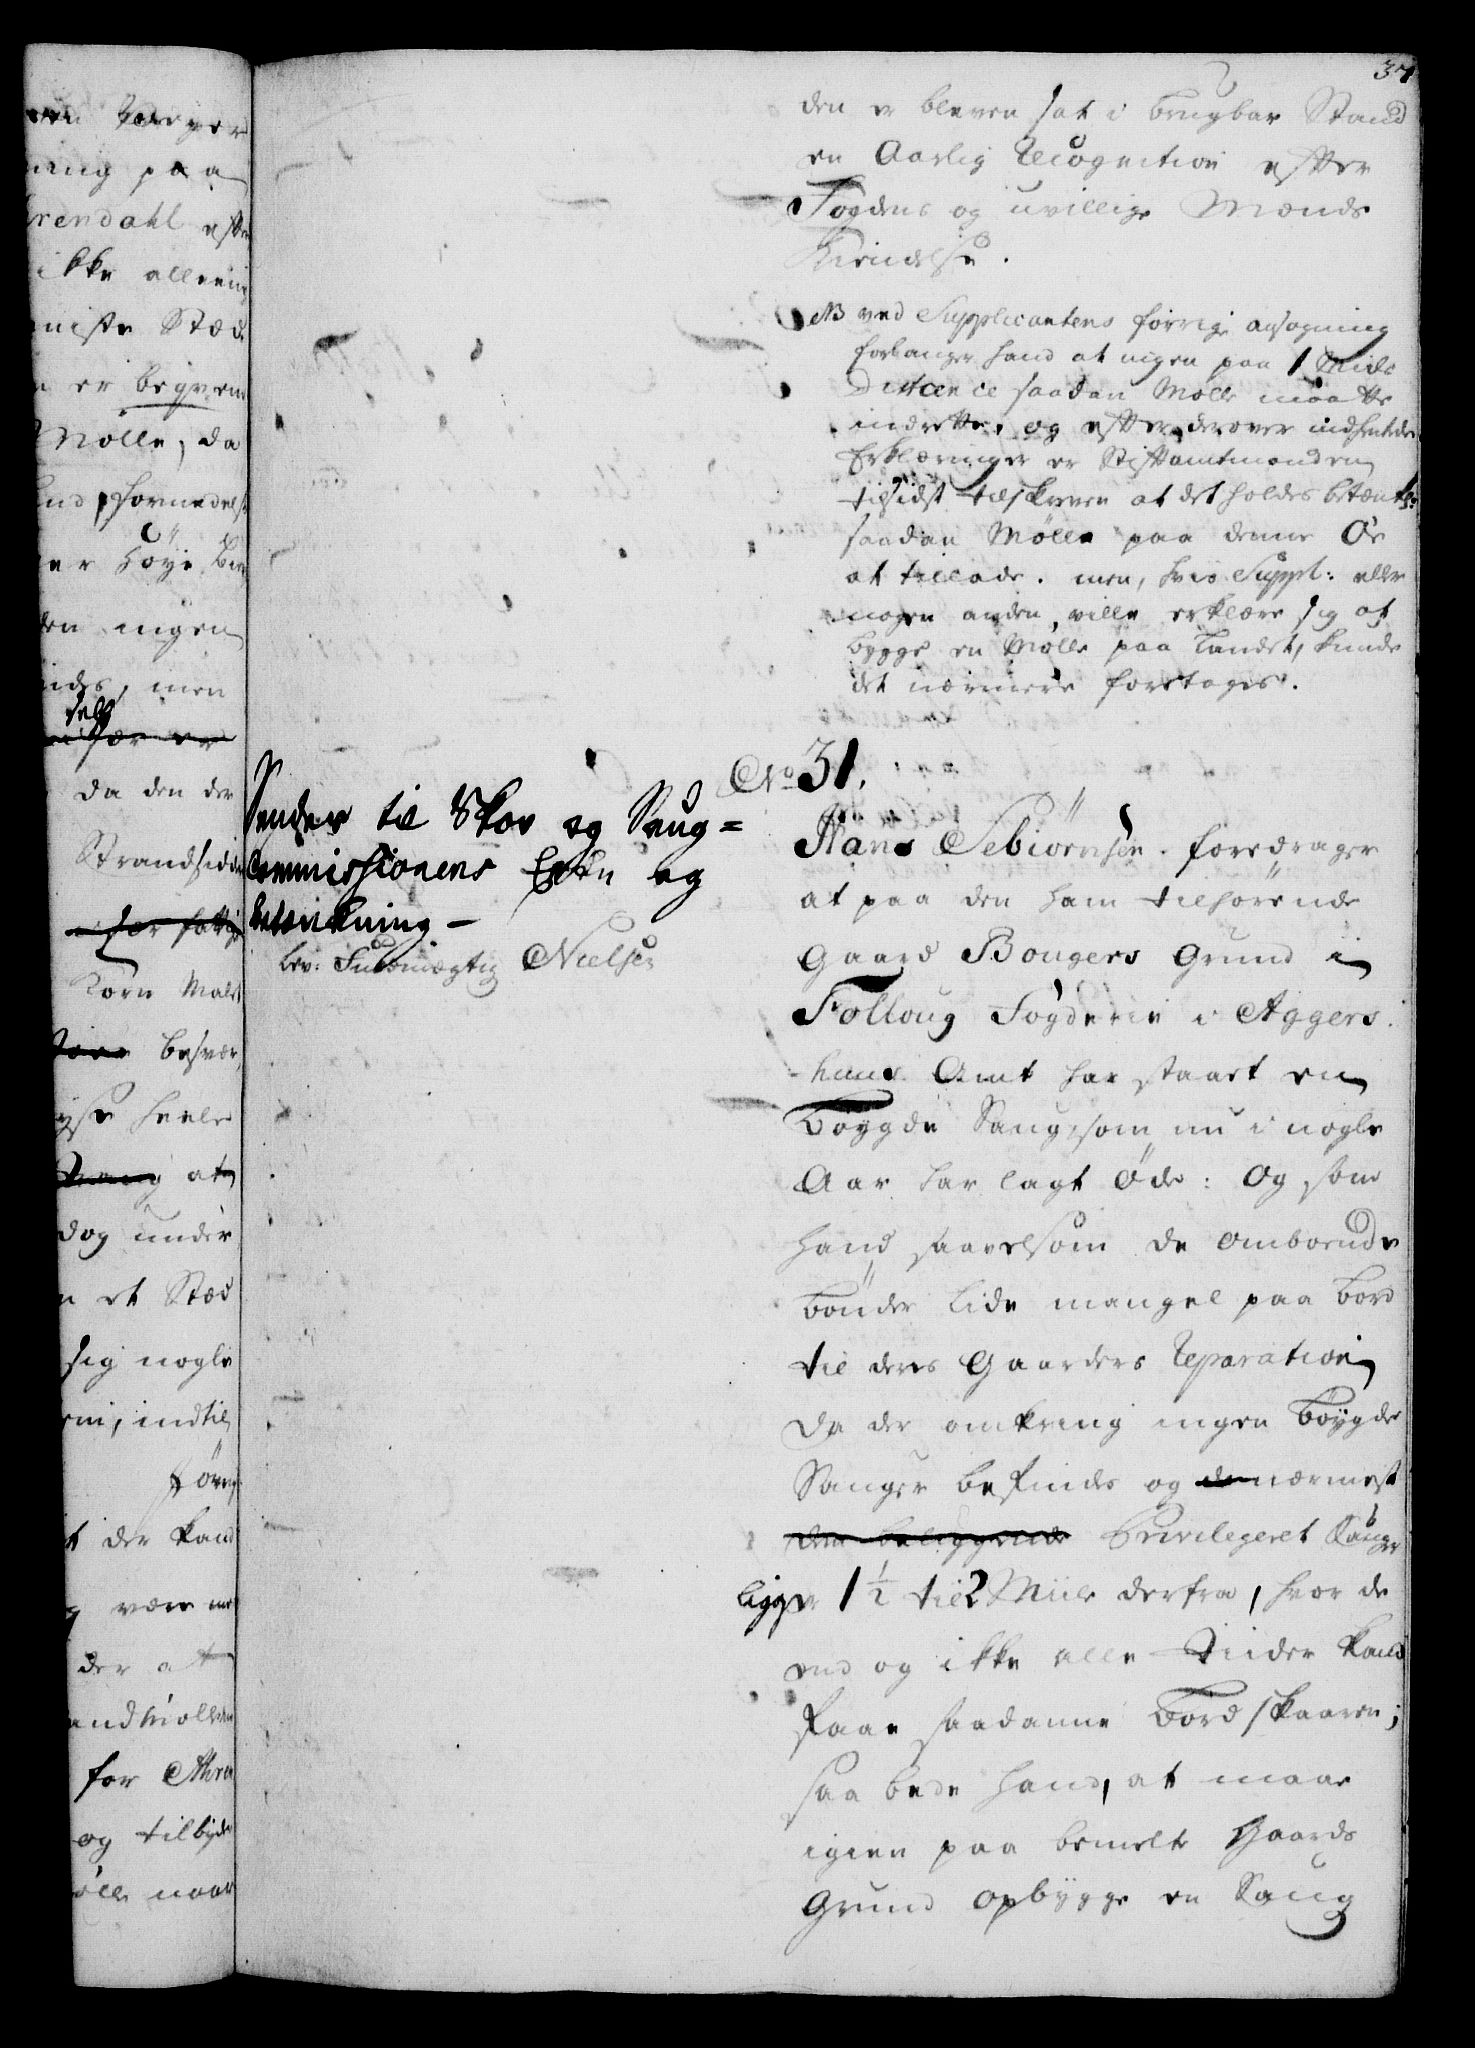 37
den er bleven sat i brugbar Stand
en Aarlig Recognition efter
Fogdens og uvillige Mænds
Kiendelse.
NB ved Supplicantens forrige ansøgning
forlanger hand at ingen paa 1 Miils
Distance saadan Mølle maatte
indrette, og efter derover indhentede
Erklæringer er Stiftamtmanden
tilsidst tilskreven at det holdes betænkel:
saadan Mølle paa denne Øe
at tillade. men, hvis Suppl: eller
nogen anden, ville erklære sig at
bygge en Mølle paa Landet, kunde
det nærmere foretages.
No 31.
Hans Sebiörnsen. foredrager
at paa den ham tilhörende
Gaard Bougers Grund i
Folloug Fogderie i Aggers-
huus Amt har staaet en
Bøygde Saug, som nu i nogle
Aar har lagt Øde: Og som
hand saavelsom de omboende
bönder lide mangel paa bord
til deres Gaarders Reparation
da der omkring ingen böygde
Sauger befindes og de nærmest
den beliggende Privilegeret Sauger
ligger 1 1/2 til 2 Miile derfra, hvor de
end og ikke alle Tiider kand
faae saadanne bord skaaren;
saa bede hand, at maae
igien paa bemelte Gaards
Grund opbygge en Saug
Sendes til Skov og Saug=
Commissionens Erkl. og
betænkning -
lev: Fuldmægtig Nielsen
ning paa
rendahl efter
ikke alleene
Stæd
er beqvem
Mølle, da
er höye
den ingen
men
selv
da den der
Strandsiden
Korn Malet
besvær
heele
at
dog under
et Stæd
sig nogle
indtil
der kand
være
der at
for
og tilbyde
naar